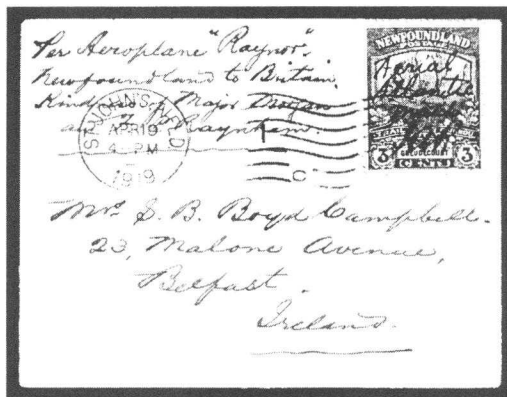 Per Aeroplane "Raynor".
Newfoundland to Britain.
Kindness of Major
and F. Raynham.
ST. JOHN'S, NFLD
APR 19
4 PM
1919
NEWFOUNDLAND
POSTAGE
Aerial
Atlantic
Mail
GUEUDECOURT
3 CENTS 3
Mrs S. B. Boyd Campbell.
23, Malone Avenue,
Belfast.
Ireland.